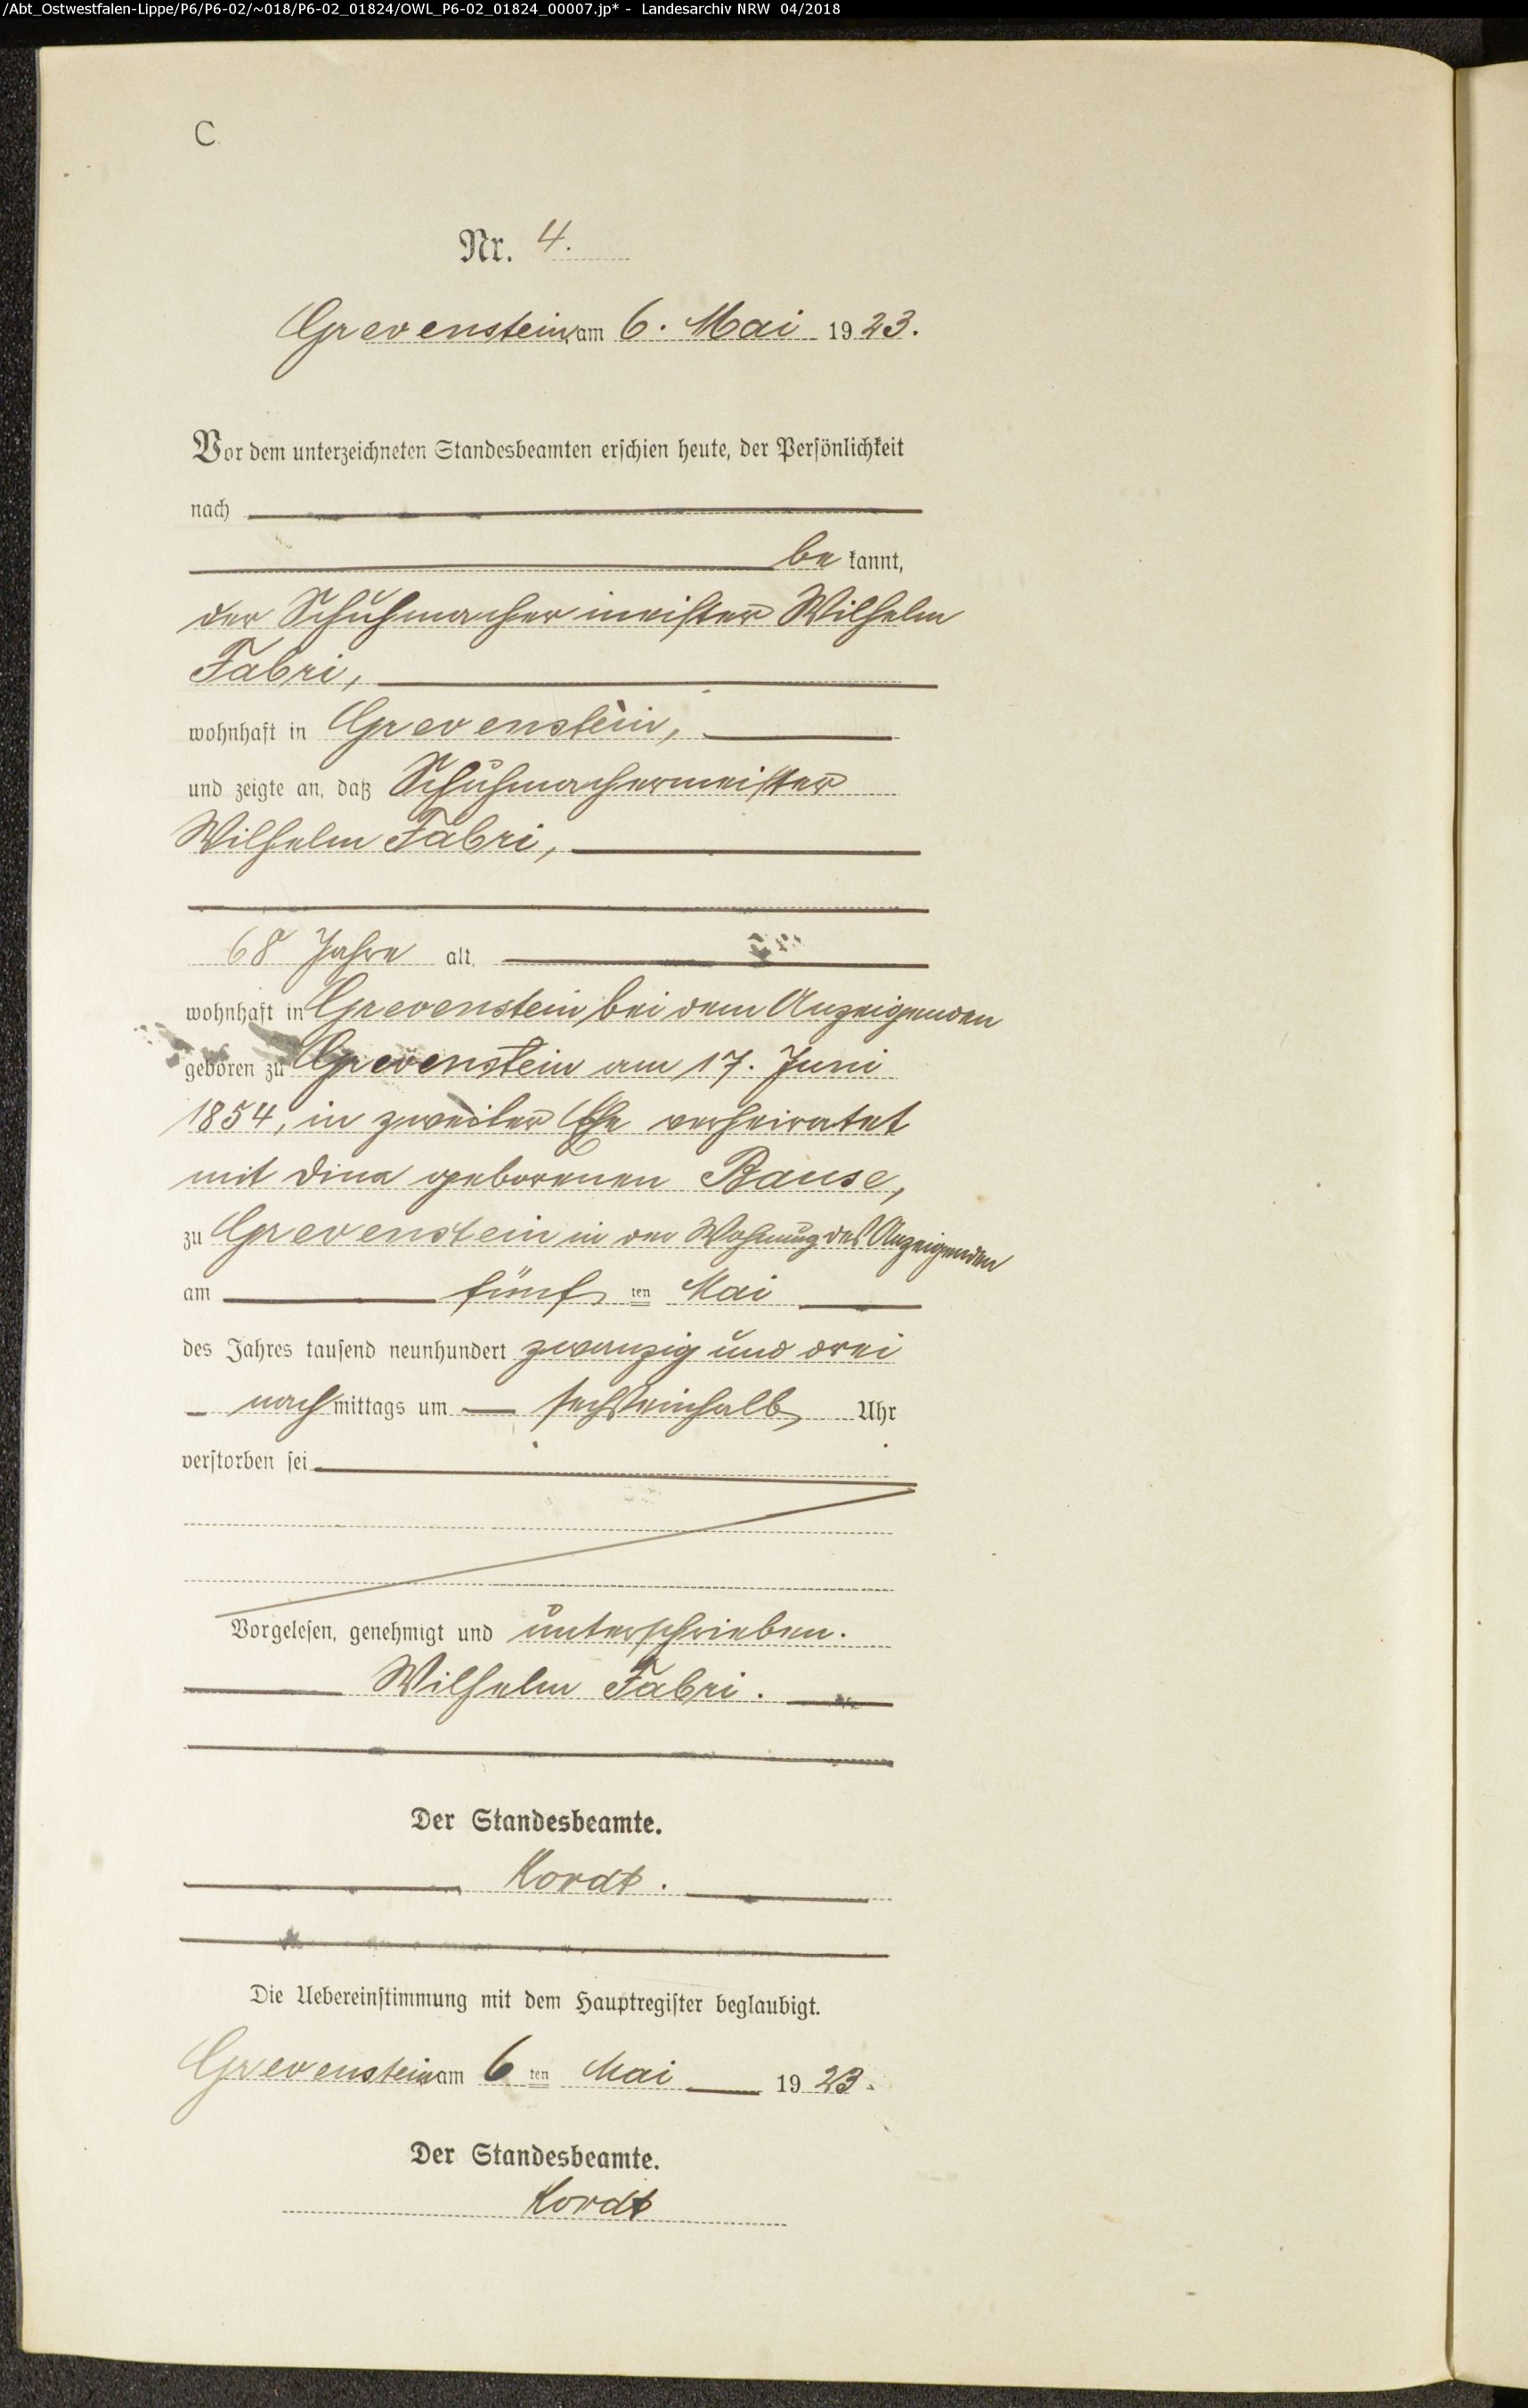 /Abt_Ostwestfalen-Lippe/P6/P6-02/~018/P6-02_01824/OWL_P6-02_01824_00007.jp* - Landesarchiv NRW 04/2018
C.
Nr. 4.
Grevenstein, am 6. Mai 1923.
Vor dem unterzeichneten Standesbeamten erschien heute, der Persönlichkeit
nach
bekannt,
der Schuhmachermeister Wilhelm
Fabri,
wohnhaft in Grevenstein,
und zeigte an, daß Schuhmachermeister
Wilhelm Fabri,
68 Jahre alt,
wohnhaft in Grevenstein bei dem Anzeigenden
geboren zu Grevenstein am 17. Juni
1854, in zweiter Ehe verheiratet
mit Dina geborenen Bause,
zu Grevenstein in der Wohnung des Anzeigenden
am fünften Mai
des Jahres tausend neunhundert zwanzig und drei
nachmittags um sechseinhalb Uhr
verstorben sei
Vorgelesen, genehmigt und unterschrieben.
Wilhelm Fabri.
Der Standesbeamte.
Kordt.
Die Uebereinstimmung mit dem Hauptregister beglaubigt.
Grevenstein am 6ten Mai 1923.
Der Standesbeamte.
Kordt